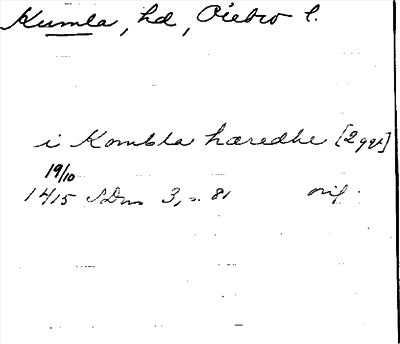 Kumla, hd, Örebro l.
i Kombla hæredhe [2 ggr]
19/10
1415 SDns 3, s. 81 orig.